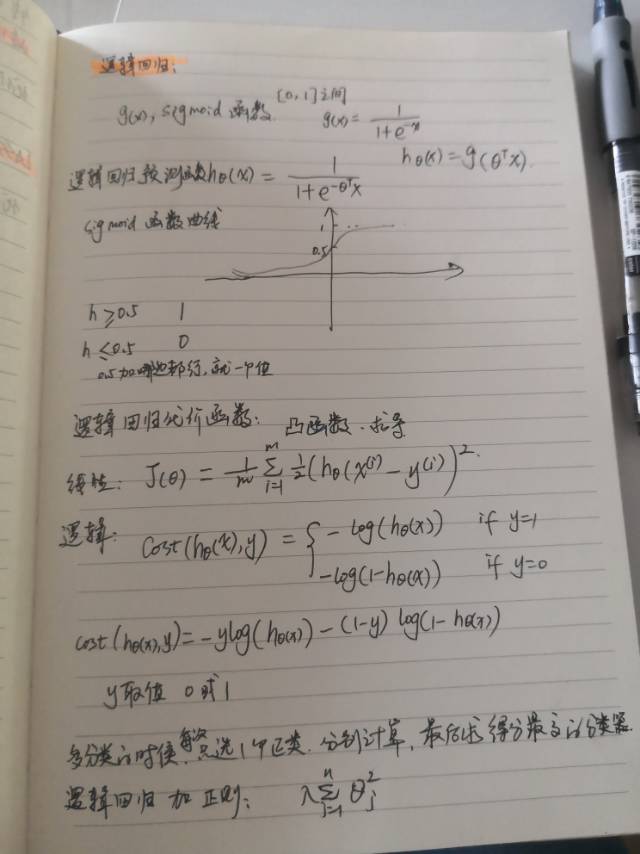 逻辑回归:
g(x), sigmoid 函数 [0,1]之间 g(x) = 1/(1+e^-x)
hθ(x) = g(θᵀx).
逻辑回归预测函数hθ(x) = 1/(1+e^-θᵀx)
sigmoid 函数曲线
1
0.5
h ≥ 0.5 1
h ≤ 0.5 0
0.5加哪边都行, 就一个值
逻辑回归代价函数: 凸函数. 求导
线性: J(θ) = 1/m Σ_{i=1}^{m} 1/2 (hθ(x⁽ⁱ⁾ - y⁽ⁱ⁾)².
逻辑: Cost(hθ(x), y) = { -log(hθ(x)) if y=1
-log(1-hθ(x)) if y=0
cost(hθ(x), y) = -ylog(hθ(x)) - (1-y) log(1-hθ(x))
y取值 0或1
多分类的时候, 每次只选1个正类. 分别计算, 最后求得分最高的分类器
逻辑回归加正则: λ Σ_{j=1}^{n} θ_j²